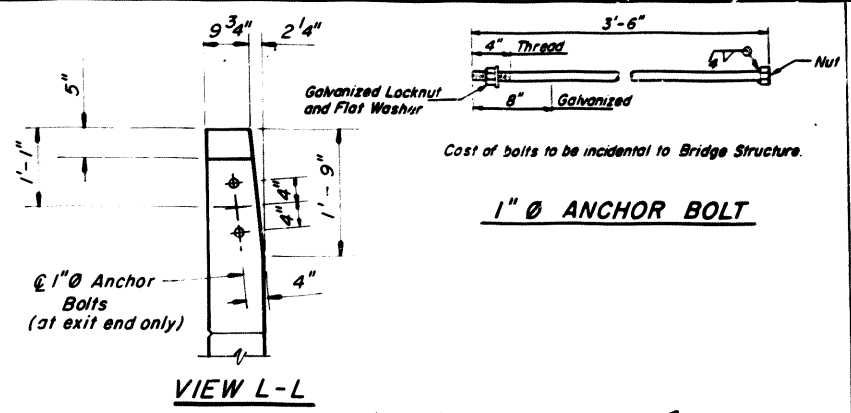 9 3/4" 2 1/4"
5"
1'-1"
4"
4"
1'-9"
℄ 1"Ø Anchor
Bolts
(at exit end only)
4"
VIEW L-L
3'-6"
4" Thread
4
Nut
Galvanized Locknut
and Flat Washer
8" Galvanized
Cost of bolts to be incidental to Bridge Structure.
1" Ø ANCHOR BOLT